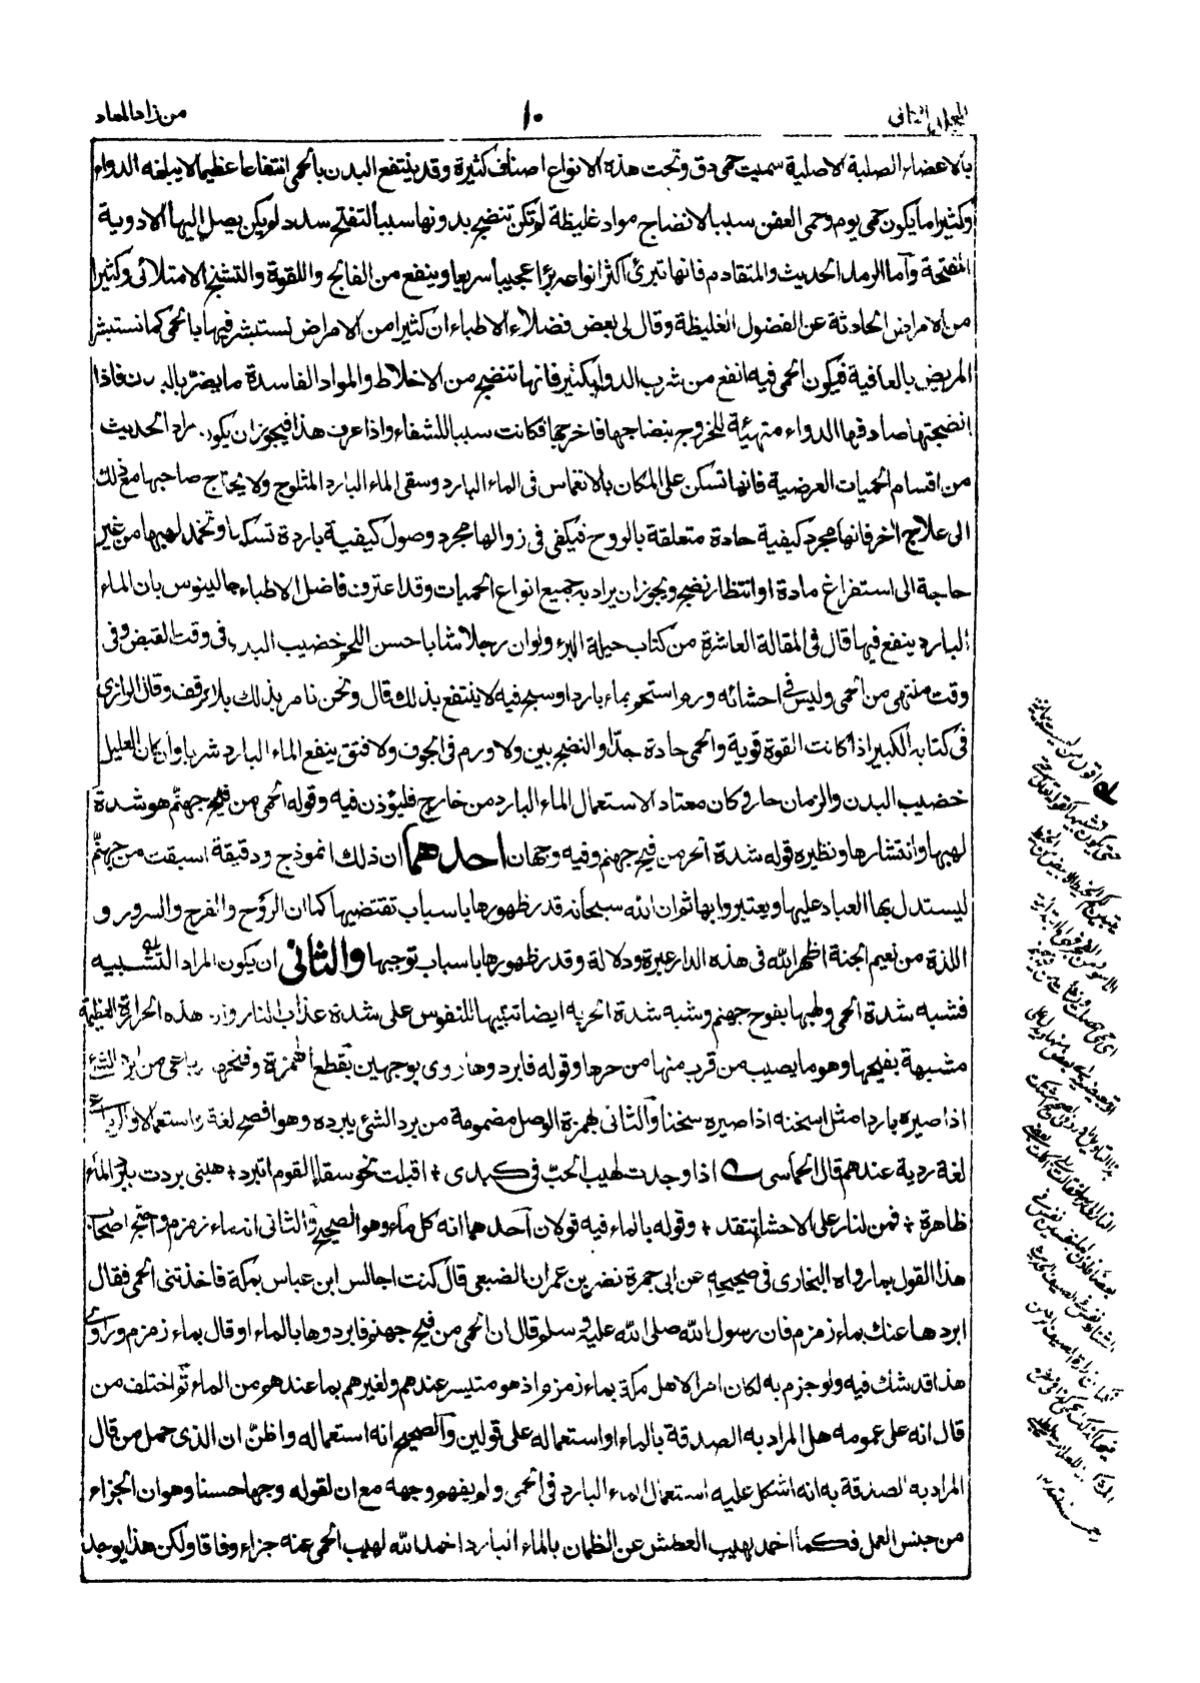 المجلد الثانى
١٠
من زاد المعاد
بالاعضاء الصلبة الاصلية سميت حمى دق وتحت هذه الانواع اصناف كثيرة وقد ينتفع البدن بالحمى انتفاعا عظيما لا يبلغه الدواء
وكثيرا ما يكون حمى يوم وحمى العفن سببا لانضاج مواد غليظة لم تكن تنضج بدونها سببا لتفتح سدد لم يكن يصل اليها الادوية
المفتحة وآما الرمد الحديث والمتقادم فانها تبرئ اكثر انواعه برءًا عجيبا سريعا وينفع من الفالج واللقوة والتشنج الامتلائى وكثيرا
من الامراض الحادثة عن الفضول الغليظة وقال لى بعض فضلاء الاطباء ان كثيرا من الامراض نستبشر فيها بالحمى كما نستبشر
المريض بالعافية فيكون الحمى فيه انفع من شرب الدواء بكثير فانها تنضج من الاخلاط والمواد الفاسدة ما يضر بالبدن فاذا
انضجتها صادفها الدواء متهيئة للخروج بنضاجها فاخرجها فكانت سببا للشفاء واذا عرف هذا فيجوز ان يكون مراد الحديث
من اقسام الحميات العرضية فانها تسكن على المكان بالانغماس فى الماء البارد وسقى الماء البارد المثلوج ولا يحتاج صاحبها مع ذلك
الى علاج آخر فانها مجرد كيفية حادة متعلقة بالروح فيكفى فى زوالها مجرد وصول كيفية باردة تسكنها وتخمد لهبها من غير
حاجة الى استفراغ مادة او انتظار نضج ويجوز ان يراد به جميع انواع الحميات وقد اعترف فاضل الاطباء جالينوس بان الماء
البارد ينفع فيها قال فى المقالة العاشرة من كتاب حيلة البرء ولو ان رجلا شابا حسن اللحم خضيب البدن فى وقت القبض وفى
وقت منتهى من الحمى وليس فى احشائه ورم استحم بماء بارد او سبح فيه لانتفع بذلك قال ونحن نامر بذلك بلا توقف وقال الرازى
فى كتابه الكبير اذا كانت القوة قوية والحمى حادة جدّا والنضج بين ولا ورم فى الجوف ولا فتق ينفع الماء البارد شربا وان كان العليل
خضيب البدن والزمان حار وكان معتاد الاستعمال الماء البارد من خارج فليؤذن فيه وقوله الحمى من فيح جهنم هو شدة
لهبها وانتشارها ونظيره قوله شدة الحر من فيح جهنم وفيه وجهان احدهما ان ذلك انموذج ودقيقة اسبقت من جهنّم
ليستدل بها العباد عليها ويعتبروا بها ثم ان الله سبحانه قدر ظهورها باسباب تقتضيها كما ان الروح والفرح والسرور و
اللذة من نعيم الجنة اظهر الله فى هذه الدار عبرة ودلالة وقدر ظهورها باسباب توجبها والثانى ان يكون المراد التشبيه
فشبه شدة الحمى ولهبها بفوح جهنم وشبه شدة الحر به ايضا تنبيها للنفوس على شدة عذاب النار وان هذه الحرارة العظيمة
مشبهة بفيحها وهو ما يصيب من قرب منها من حرها وقوله فابردوها روى بوجهين بقطع الهمزة وفتحها رباعى من ابرد الشئ
اذا صيره باردا مثل اسخنه اذا صيره سخنا والثانى بهمزة الوصل مضمومة من برد الشئ يبرده وهو افصح لغة واستعمالا والرباعى
لغة ردية عندهم قال الحماسى اذا وجدت لهيب الحبّ فى كبدى + اقبلت نحو سقاء القوم اتبرد + هبنى بردت ببرد الماء
ظاهرة + فمن لنار على الاحشا تتقد + وقوله بالماء فيه قولان آحدهما انه كل ماء وهو الصحيح والثانى انه ماء زمزم واحتج اصحاب
هذا القول بما رواه البخارى فى صحيحه عن ابى جمرة نضر بن عمران الضبعى قال كنت اجالس ابن عباس بمكة فاخذتنى الحمى فقال
ابردها عنك بماء زمزم فان رسول الله صلى الله عليه وسلم قال ان الحمى من فيح جهنم فابردوها بالماء او قال بماء زمزم وراوى
هذا قد شك فيه ولو جزم به لكان امرا لاهل مكة بماء زمزم اذ هو متيسر عندهم ولغيرهم بما عندهم من الماء ثم اختلف من
قال انه على عمومه هل المراد به الصدقة بالماء او استعماله على قولين والصحيح انه استعماله واظن ان الذى حمل من قال
المراد به الصدقة به انه اشكل عليه استعمال الماء البارد فى الحمى ولم يفهم وجهه مع ان لقوله وجها حسنا وهو ان الجزاء
من جنس العمل فكما اخمد لهيب العطش عن الظمان بالماء البارد اخمد الله لهيب الحمى عنه جزاء وفاقا ولكن هذا يوجد